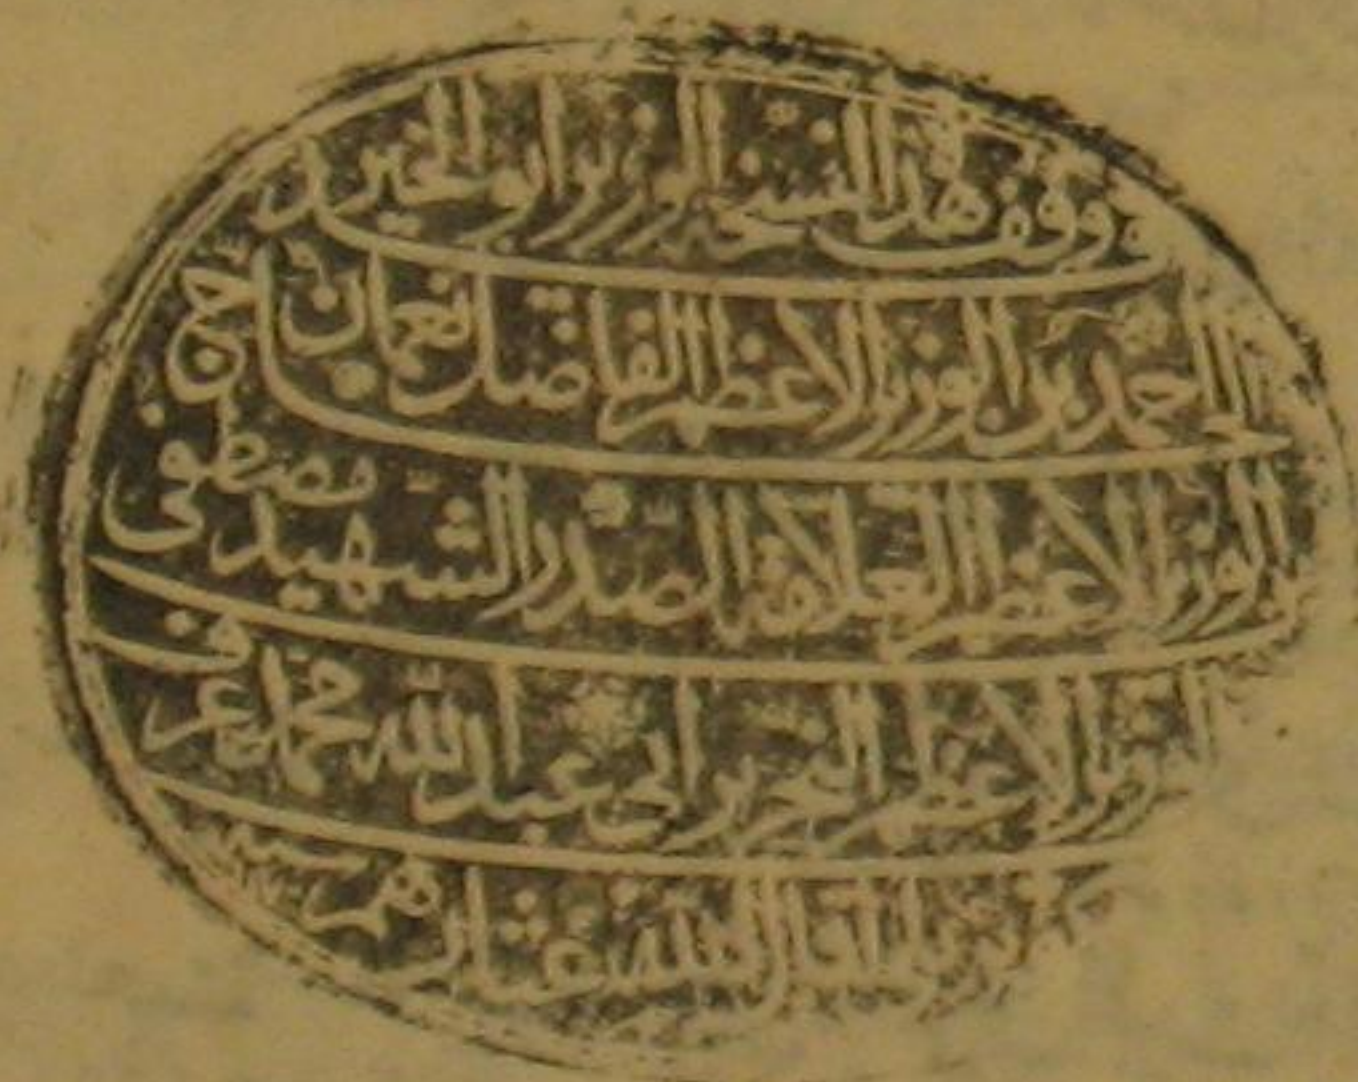 وقف هذا النسخة الوزير ابو الخير
احمد بن الوزير الاعظم الفاضل نعمان باشا
الوزير الاعظم العلامة الصدر الشهيد مصطفى
الوزير الاعظم النحرير ابي عبد الله محمد عرف
اقال الله عثارهم